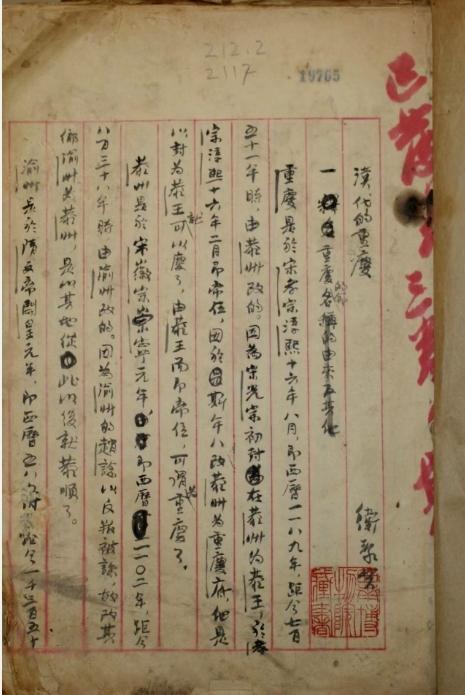 212.2
2117
19765
漢代的重慶
衛聚賢
一 重慶名稱的由來及其他
重慶是於宋孝宗淳熙十六年八月,即西曆一一八九年,距今七百
五十一年時,由恭州改的。因為宋光宗初封在恭州為恭王,於孝
宗淳熙十六年二月即帝位,因於斯年八改恭州為重慶府,他是
以封為恭王就可以慶了,由恭王而即帝位,可謂重慶了。
恭州是於宋徽宗崇寧元年即西曆一一〇二年,距今
八百三十八年時由渝州改的。因為渝州的趙諗以反叛被誅,故改其
鄉渝州為恭州,是以其地從此以後就恭順了。
渝州是於隋文帝開皇元年,即西曆五八
今一千三百五十